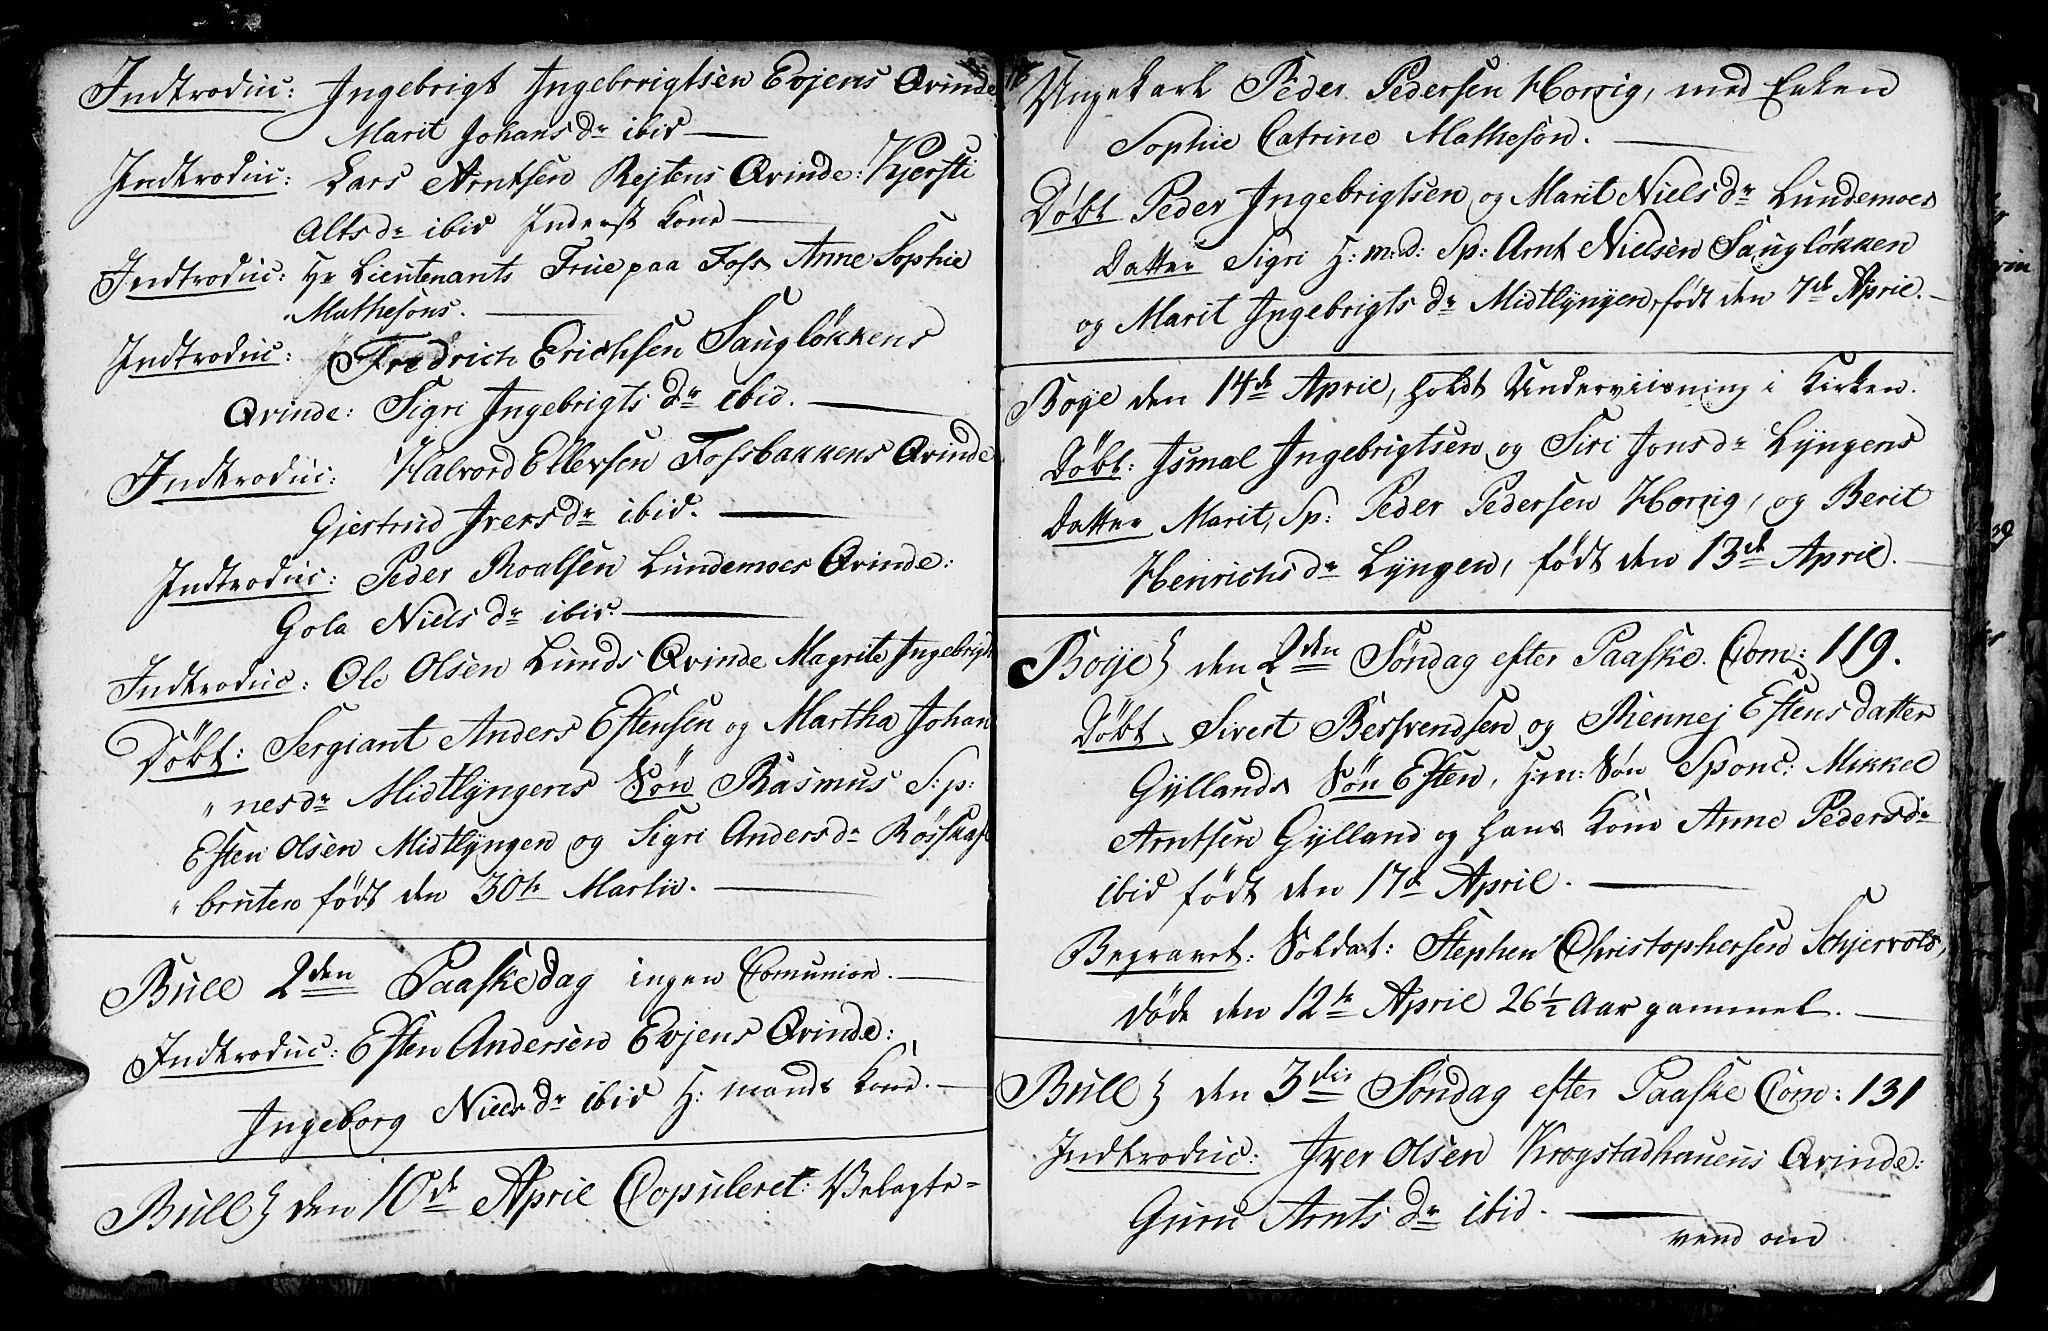 Indtroduc: Ingebrigt Ingebrrigtsen Evjens Qvinde
Marit Johans dr ibid
Indtroduc: Lars Arntsen Rejtens Qvinde: Kjersti
Altsdr ibid Inderst Kone
Indtroduc: Hr Lieutenants Frue paa Foss Anne Sophie
Mathesons.
Indtroduc: Fredrich Erichsen Saugløkkens
Qvinde: Sigri Ingebrigts dr ibid.
Indtroduc: Halvord Ellevsen Fossbakkens Qvinde
Gjertrud Ivers dr ibid.
Indtroduc: Peder Roalsen Lundemoes Qvinde:
Gola Niels dr ibid.
Indtroduc: Ole Olsen Lunds Qvinde Magrite Ingebrigts
Døbt: Sergiant Anders Estensen og Martha Johan
" nesdr Midtlyngens Søn Rasmus S:p:
Esten Olsen Midtlyngen og Sigri Andersdr Røsskaft
" bruten født den 30te Martii.
Bull 2den Paaskedag ingen Comunion.
Indtroduc: Esten Andersen Evjens Qvinde:
Ingeborg Nielsdr ibid H: mands Kone.
Bull} den 10de April Copuleret: Velagte-
Ungekarl Peder Pedersen Horrig, med Enken
Sophie Catrine Matheson.
Døbt Peder Ingebrigtsen og Marit Niels dr Lundemoes
Datter Sigri H: m: D: Sp: Arnt Nielsen Saugløkken
og Marit Ingebrigts dr Midtlyngen, født den 7de April.
Boye den 14de April, holdt Underviisning i Kirken.
Døbt: Ismal Ingebrigtsen og Siri Jons dr Lyngens
Datter Marit, Sp: Peder Pedersen Horrig, og Berit
Henrichs dr Lyngen, født den 13de April.
Boye} den 2den Søndag efter Paaske. Com: 119.
Døbt Sivert Bersvendsen og Rennej Estens datter
Gyllands Søn Esten, H:m: Søn Sponc: Mikkel
Arntsen Gylland og hans Kone Anne Pedersdr
ibid født den 17de April.
Begravet: Soldat: Stephen Christophersen Schjervold,
døde den 12te April 26½ Aar gammel.
Bull} den 3die Søndag efter Paaske Com: 131
Indtroduc: Iver Olsen Krogstadhauens Qvinde:
Guru Arnts dr ibid.
vend om